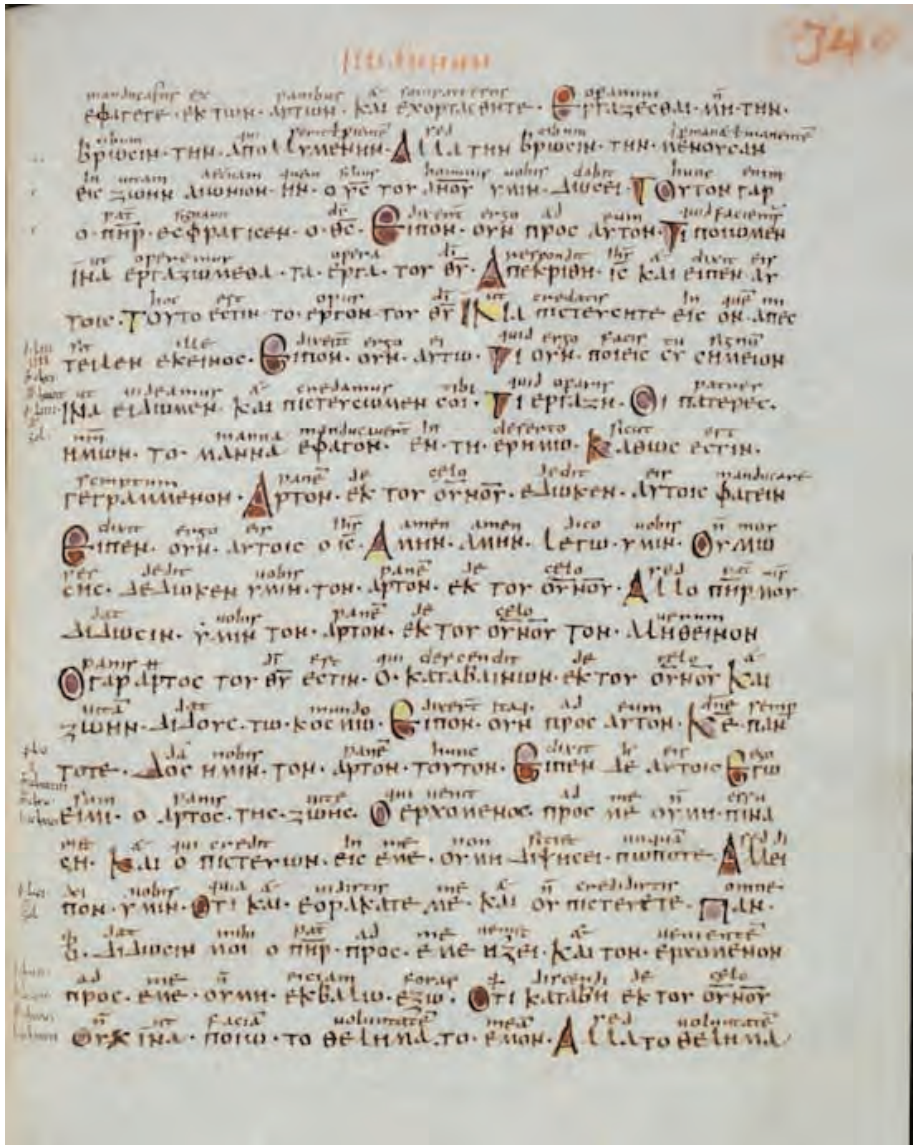 manducastis ex panibus & saturati estis operamini n̄
ΕΦΑΓΕΤΕ · ΕΚ ΤΩΝ · ΑΡΤΩΝ · ΚΑΙ ΕΧΟΡΤΑCΘΗΤΕ · ΕΡΓΑΖΕCΘΑΙ · ΜΗ · ΤΗΝ ·
cibum qui sed cibum
ΒΡΩCΙΝ · ΤΗΝ · ΑΠΟΛΛΥΜΕΝΗΝ · ΑΛΛΑ ΤΗΝ ΒΡΩCΙΝ · ΤΗΝ · ΜΕΝΟΥCΑΝ
In uitam quem filius hominis uobis dabit hunc enim
ΕΙC ΖΩΗΝ ΑΙΩΝΙΟΝ · ΗΝ · Ο Υ̅C̅ ΤΟΥ Α̅Ν̅Ο̅Υ̅ ΥΜΙΝ · ΔΩCΕΙ · ΤΟΥΤΟΝ ΓΑΡ
pat̄ signauit d̄s dixer̄t ergo ad eum quid faciem̄
Ο · Π̅Η̅Ρ̅ · ΕCΦΡΑΓΙCΕΝ · Ο · Θ̅C̅ · ΕΙΠΟΝ · ΟΥΝ ΠΡΟC ΑΥΤΟΝ · ΤΙ ΠΟΙΩΜΕΝ
ut operemur opera d̄i respondit ih̄s & dixit eis
ΙΝΑ ΕΡΓΑΖΩΜΕΘΑ · ΤΑ · ΕΡΓΑ · ΤΟΥ Θ̅Υ̅ · ΑΠΕΚΡΙΘΗ · Ι̅C̅ ΚΑΙ ΕΙΠΕΝ ΑΥ
hoc est opus d̄i ut credatis In quē mi
ΤΟΙC · ΤΟΥΤΟ ΕCΤΙΝ · ΤΟ · ΕΡΓΟΝ · ΤΟΥ Θ̅Υ̅ ΙΝΑ ΠΙCΤΕΥCΗΤΕ ΕΙC ΟΝ · ΑΠΕC
sit ille dixer̄t ergo ei quid ergo facis tu signū
ΤΕΙΛΕΝ ΕΚΕΙΝΟC · ΕΙΠΟΝ · ΟΥΝ · ΑΥΤΩ · ΤΙ ΟΥΝ · ΠΟΙΕΙC CΥ CΗΜΕΙΟΝ
ut uideamus & credamus tibi quid operis patres
ΙΝΑ ΕΙΔΩΜΕΝ · ΚΑΙ ΠΙCΤΕΥCΩΜΕΝ CΟΙ · ΤΙ ΕΡΓΑΖΗ · ΟΙ ΠΑΤΕΡΕC ·
manna manducauer̄t In deserto sicut est
ΗΜΩΝ · ΤΟ · ΜΑΝΝΑ ΕΦΑΓΟΝ · ΕΝ · ΤΗ · ΕΡΗΜΩ · ΚΑΘΩC ΕCΤΙΝ ·
scriptum panē de celo dedit eis manducare
ΓΕΓΡΑΜΜΕΝΟΝ · ΑΡΤΟΝ · ΕΚ ΤΟΥ Ο̅Υ̅Ν̅Ο̅Υ̅ · ΕΔΩΚΕΝ · ΑΥΤΟΙC ΦΑΓΕΙΝ
dixit ergo eis ih̄s amen amen dico uobis n̄ mor
ΕΙΠΕΝ · ΟΥΝ · ΑΥΤΟΙC Ο Ι̅C̅ · ΑΜΗΝ · ΑΜΗΝ · ΛΕΓΩ · ΥΜΙΝ · ΟΥ ΜΩ
ses dedit uobis panē de celo sed pat̄
CΗC · ΔΕΔΩΚΕΝ ΥΜΙΝ · ΤΟΝ · ΑΡΤΟΝ · ΕΚ ΤΟΥ Ο̅Υ̅Ν̅Ο̅Υ̅ · ΑΛΛ Ο Π̅Η̅Ρ̅ ΜΟΥ
dat uobis panē de celo uerum
ΔΙΔΩCΙΝ · ΥΜΙΝ ΤΟΝ · ΑΡΤΟΝ · ΕΚ ΤΟΥ Ο̅Υ̅Ν̅Ο̅Υ̅ ΤΟΝ · ΑΛΗΘΕΙΝΟΝ
panis d̄i est qui descendit de celo &
Ο ΓΑΡ ΑΡΤΟC ΤΟΥ Θ̅Υ̅ ΕCΤΙΝ · Ο · ΚΑΤΑΒΑΙΝΩΝ · ΕΚ ΤΟΥ Ο̅Υ̅Ν̅Ο̅Υ̅ ΚΑΙ
uitā dat mundo dixer̄t ad eum d̄ne semp
ΖΩΗΝ · ΔΙΔΟΥC · ΤΩ · ΚΟCΜΩ · ΕΙΠΟΝ · ΟΥΝ ΠΡΟC ΑΥΤΟΝ · Κ̅Ε̅ · ΠΑΝ
da nobis panē hunc dixit eis ego
ΤΟΤΕ · ΔΟC ΗΜΙΝ · ΤΟΝ · ΑΡΤΟΝ · ΤΟΥΤΟΝ · ΕΙΠΕΝ ΔΕ ΑΥΤΟΙC ΕΓΩ
sum panis uitę qui uenit ad me n̄ esu
ΕΙΜΙ · Ο ΑΡΤΟC · ΤΗC · ΖΩΗC · Ο ΕΡΧΟΜΕΝΟC · ΠΡΟC ΜΕ ΟΥ ΜΗ · ΠΙΝΑ
riet & qui credit In me non sitiet unquā sed di
CΗ · ΚΑΙ Ο ΠΙCΤΕΥΩΝ · ΕΙC ΕΜΕ · ΟΥ ΜΗ ΔΙΨΗCΕΙ · ΠΩΠΟΤΕ · ΑΛΛ ΕΙ
xi uobis quia & uidistis me & n̄ credidistis omne
ΠΟΝ · ΥΜΙΝ · ΟΤΙ ΚΑΙ · ΕΟΡΑΚΑΤΕ ΜΕ · ΚΑΙ ΟΥ ΠΙCΤΕΥΕΤΕ · ΠΑΝ ·
dat mihi pat̄ ad me ueniet & uenientē
Ο · ΔΙΔΩCΙΝ ΜΟΙ Ο Π̅Η̅Ρ̅ · ΠΡΟC · ΕΜΕ ΗΞΕΙ · ΚΑΙ ΤΟΝ · ΕΡΧΟΜΕΝΟΝ
ad me n̄ eiciam foras descendi de celo
ΠΡΟC · ΕΜΕ · ΟΥ ΜΗ · ΕΚΒΑΛΩ · ΕΞΩ · ΟΤΙ ΚΑΤΑΒΗ ΕΚ ΤΟΥ Ο̅Υ̅Ν̅Ο̅Υ̅
n̄ ut faciā uoluntatē meā sed uoluntatē
ΟΥΧ ΙΝΑ · ΠΟΙΩ · ΤΟ ΘΕΛΗΜΑ · ΤΟ · ΕΜΟΝ · ΑΛΛΑ ΤΟ ΘΕΛΗΜΑ